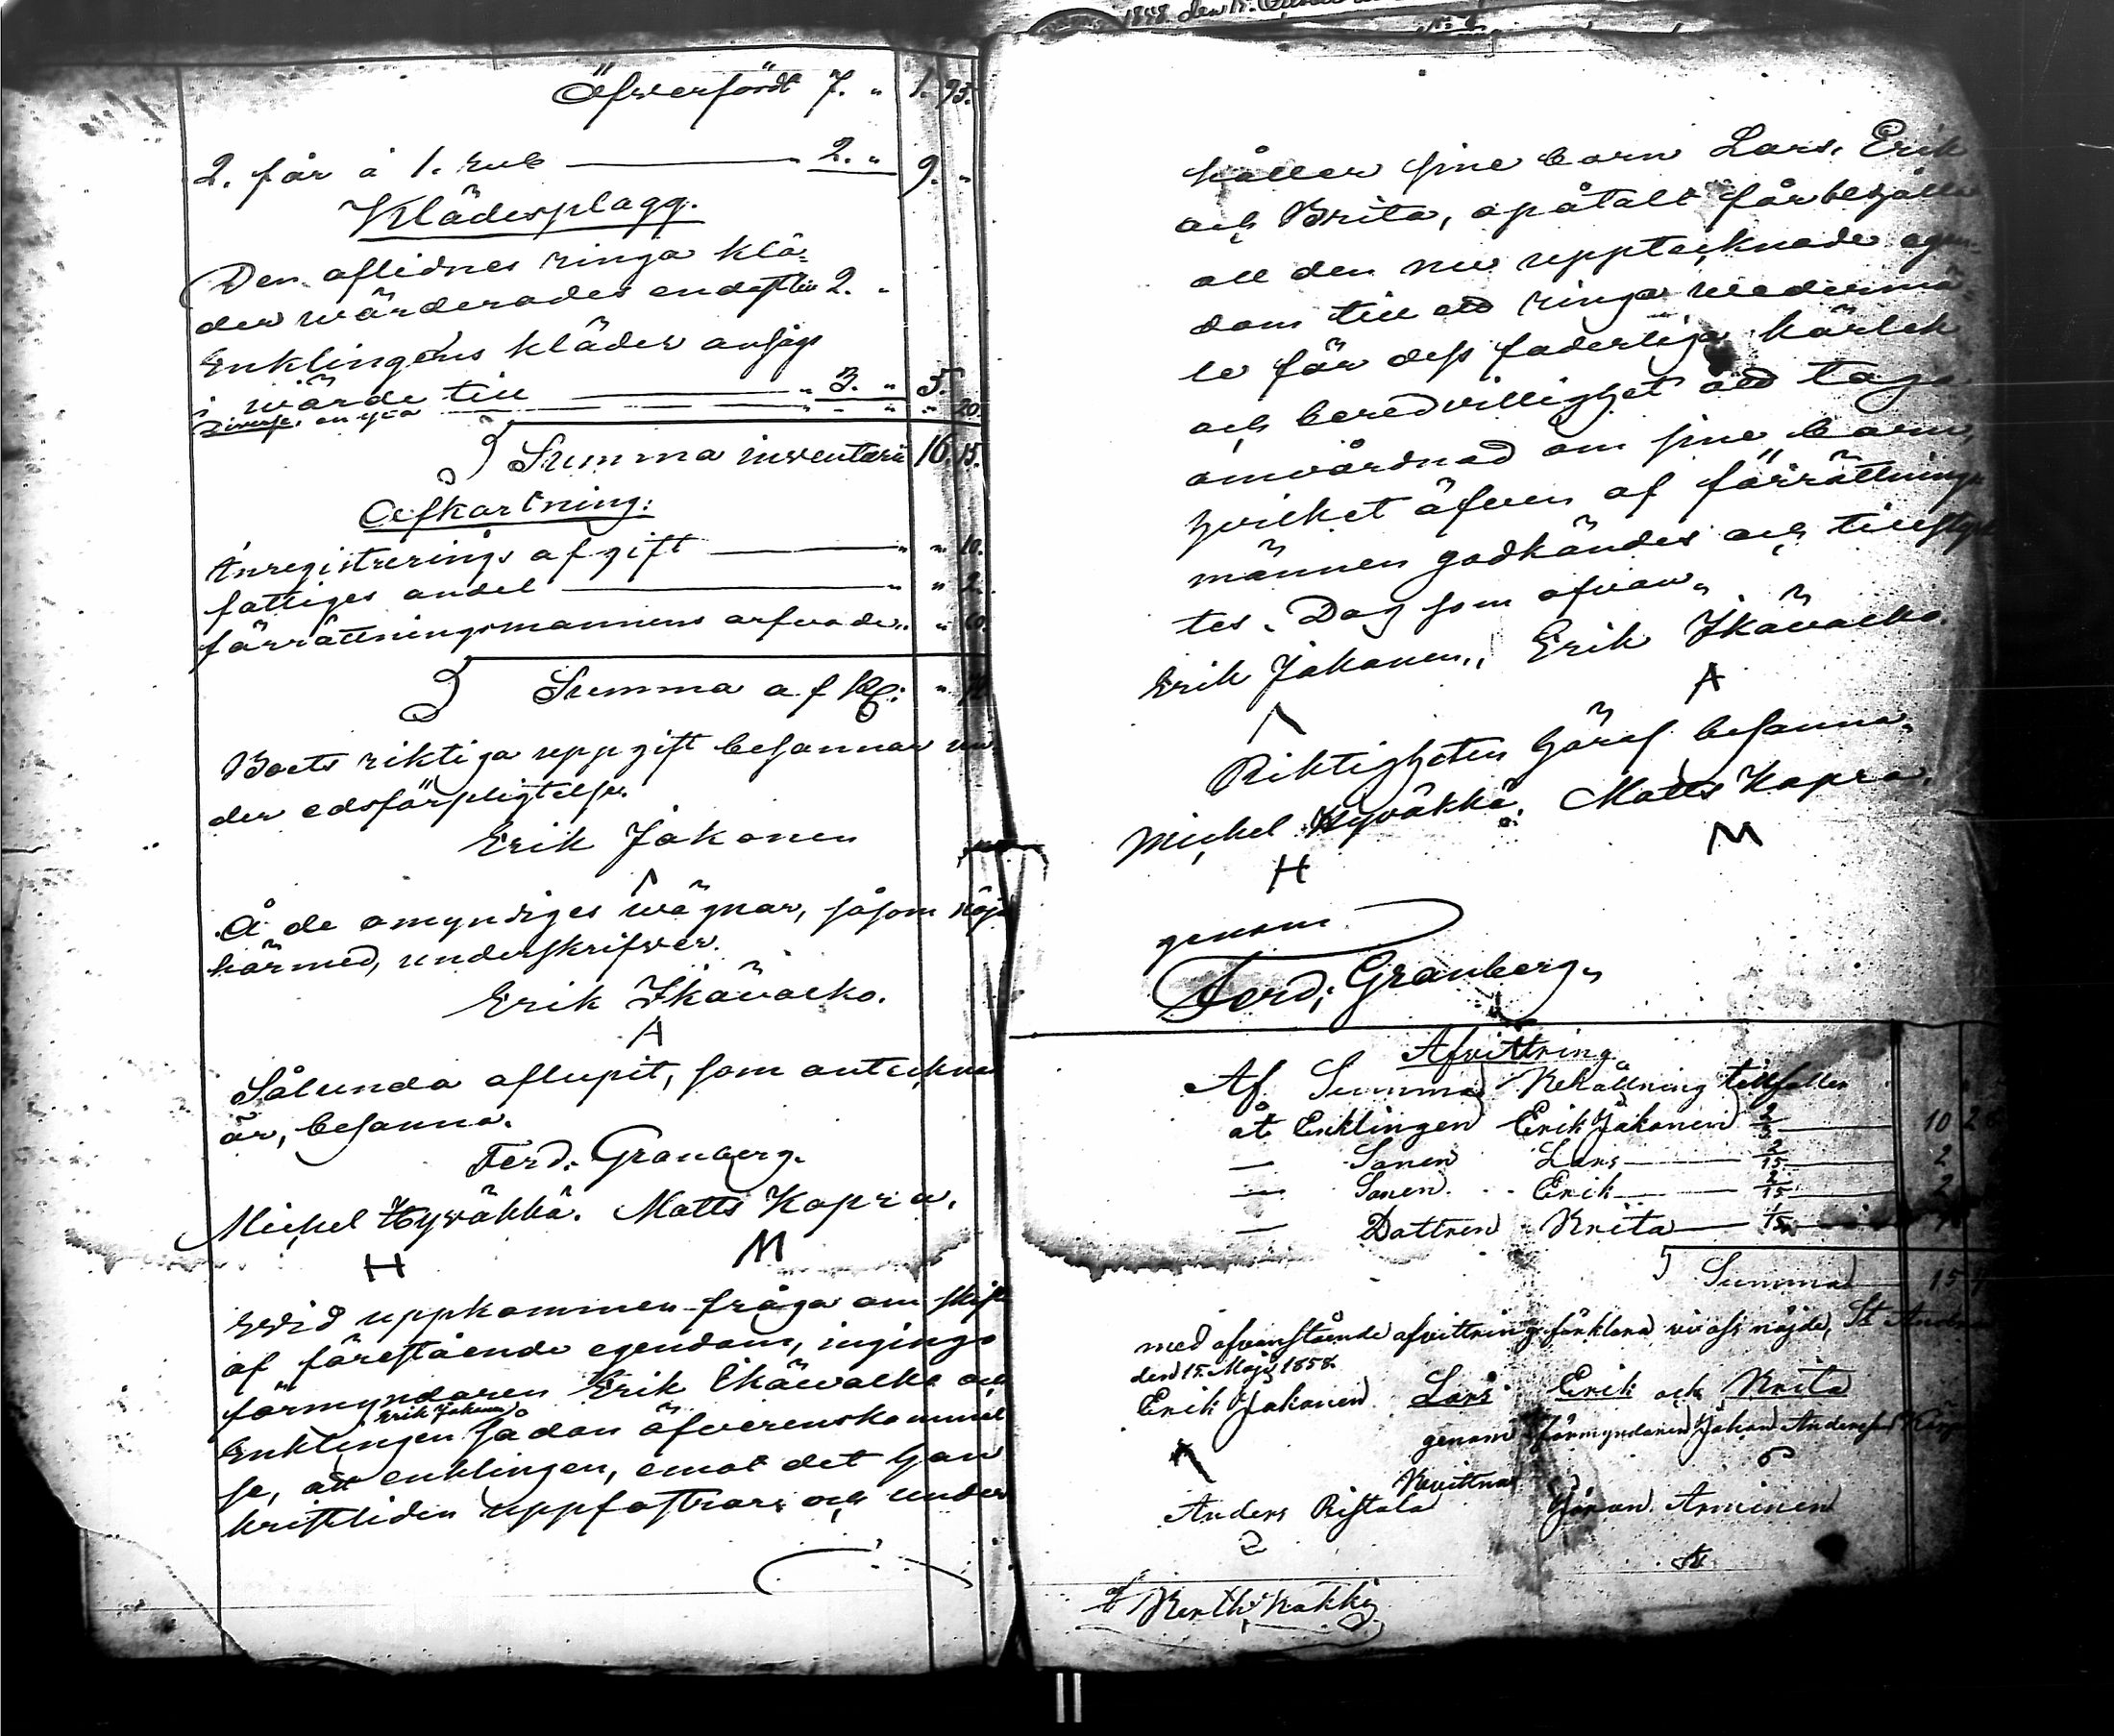 Öfwerfördt 7. " 1. 95.
2. får á 1. rub — " 2. " 9. "
Klädesplagg.
Den aflidnes ringa klä-
der wärderades endast till 2. "
Enklingens kläder ansågs
i wärde till — " 3. " 5.
Diverse " " " 20.
Summa inventarii 16. 15.
Afkortning:
Inregistrerings afgift — " " 10.
fattiges andel — " " 2.
förrättningsmannens arfvode " " 60.
Summa afk: "
Boets riktiga uppgift besannar un-
der edsförpligtelse.
Erik Jakonen
Å de omyndiges wägnar, såsom nöjd
härmed, underskrifwer.
Erik Ikäwalko.
A
Sålunda aflupit, som antecknad
är, besanna.
Ferd. Granberg.
Michel Hyväkkä. Matts Kapra.
H M
Wid uppkommen fråga om skifte
af förestående egendom, ingingo
förmyndaren Erik Ikäwalko och
Erik Jakonen
Enklingen sådan öfverenskommel
se, att enklingen, emot det han
kristliden uppfostrar och under
1848 den 15.
håller sine barn Lars, Erik
och Brita, opåtalt får behålla
all den nu upptecknade egen-
dom till ett ringa wedermä-
le för dess faderliga kärlek
och beredvillighet att taga
omvårdnad om sine barn,
hvilket äfven af förrättnings
männen godkändes och tillstyrk
tes. Dag som ofvan.
Erik Jakonen, Erik Ikäwalko
A
Riktigheten häraf besanna,
Michel Hyväkkä. Matts Kapra.
H M
genom
Ferd. Granberg.
Afvittring
Af Summa Behållning tillfaller
åt Enklingen Erik Jakonen 2/3 — 10 2
— Sonen Lars — 2/15 — 2
— Sonen Erik — 2/15 — 2
— Dottren Brita — 1/15 — 1
Summa 15
med ofvanstående afvittring förklara vi oss nöjde, St Andreæ
den 15. Maji 1858.
Erik Jakonen Lars Erik och Brita
genom Förmyndaren Johan Andersson
Bevittnas
Anders Ristola Göran Arminen